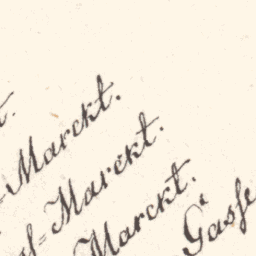 t.
=Marckt.
=Marckt.
Marckt.
Gasse